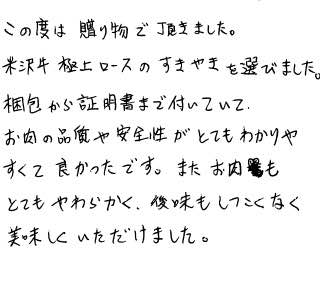 この度は 贈り物で頂きました。
米沢牛 極上ロースの すきやきを選びました。
梱包から証明書まで付いていて、
お肉の品質や安全性が とてもわかりや
すくて 良かったです。また お肉も
とても やわらかく、後味も しつこくなく
美味しく いただけました。